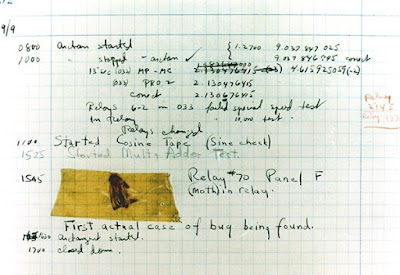 9/9
0800 Antan started
1000 " stopped - antan ✓ { 1.2700 9.037 847 025
9.037 846 995 correct
13"uc (032) MP - MC 2.130476415 4.615925059(-2)
(033) PRO 2 2.130476415
correct 2.130676415
Relays 6-2 in 033 failed special speed test
in Relay " 10,000 test.
Relays changed
1100 Started Cosine Tape (Sine check)
1525 Started Multi Adder Test.
1545 Relay #70 Panel F
(moth) in relay.
First actual case of bug being found.
antangent started.
1700 closed down.
Relay